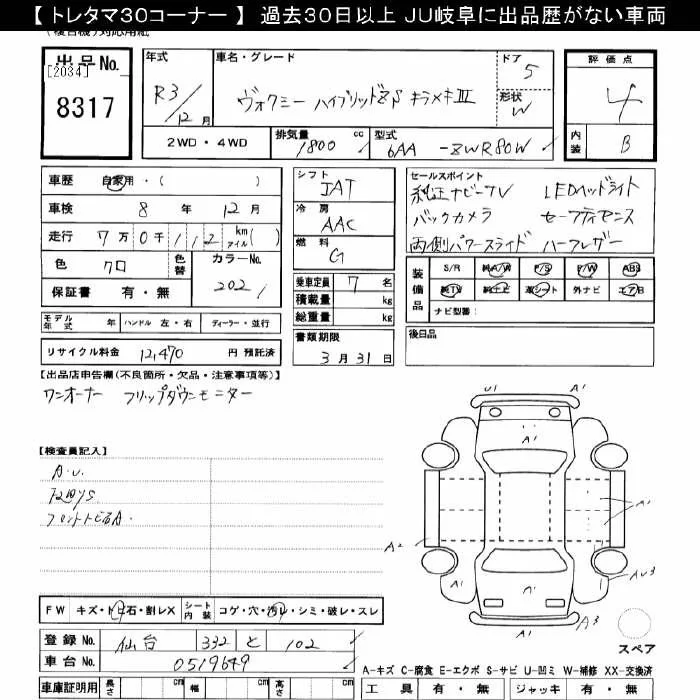 【 トレタマ30コーナー 】 過去30日以上 JU岐阜に出品歴がない車両
(複合機)対応用紙
出品No.
[2034]
8317
年式
R3/12月
車名・グレード
ヴォクシー ハイブリッドZS キラメキIII
ドア
5
形状
W
評価点
4
内装
B
2WD・4WD
排気量
1800 cc
型式
6AA -ZWR80W
車歴 自家用・( )
車検 8 年 12 月
走行 7万0千112 km マイル( )
色 クロ 色替
カラーNo.
202
保証書 有・無
モデル年式 年 ハンドル 左・右 ディーラー・並行
リサイクル料金 12,470 円 預託済
シフト
IAT
冷房
AAC
燃料
G
乗車定員 7 名
積載量 kg
総重量 kg
書類期限
3月31日
セールスポイント
純正ナビーTV LEDヘッドライト
バックカメラ セーフティセンス
両側パワースライド ハーフレザー
装備品
S/R 純A/W P/S P/W ABS
純TV 純ナビ 革シート 外ナビ エアB
ナビ型番:
後日品
【出品店申告欄(不良箇所・欠品・注意事項等)】
ワンオーナー フリップダウンモニター
【検査員記入】
A.U.
フロントトビ石A.
U1 A1
A1
A1
A1
A2
A1
A1
A1
AU3
A3
スペア
FW キズ・トビ石・割レX シート内装 コゲ・穴・汚レ・シミ・破レ・スレ
登録No. 仙台 332 と 102
車台No. 0519649
車庫証明用 長さ cm 幅 cm 高さ cm
A-キズ C-腐食 E-エクボ S-サビ U-凹ミ W-補修 XX-交換済
工具 有・無 ジャッキ 有・無